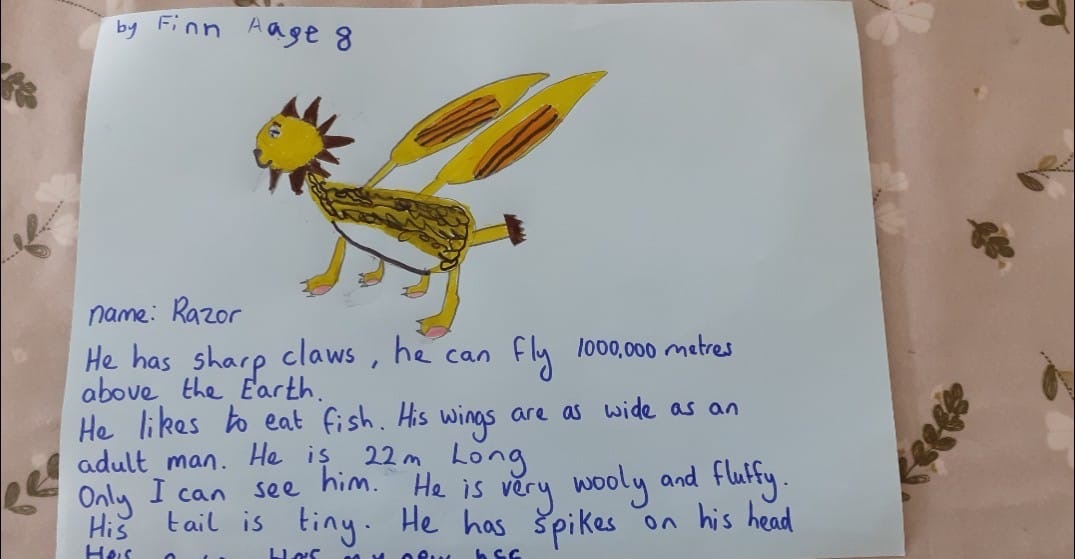 by Finn Aage 8
name: Razor
He has sharp claws, he can fly 1000,000 metres
above the Earth.
He likes to eat fish. His wings are as wide as an
adult man. He is 22m Long
Only I can see him. He is very wooly and fluffy.
His tail is tiny. He has spikes on his head